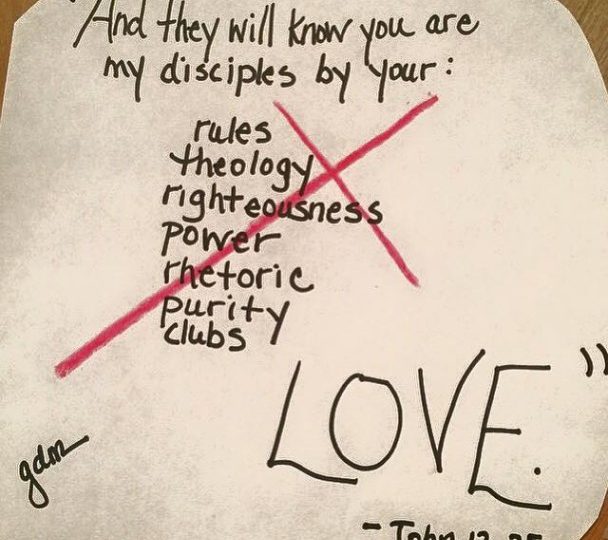 "And they will know you are
my disciples by your:
rules
theology
righteousness
power
rhetoric
purity
clubs
LOVE."
gdm
- John